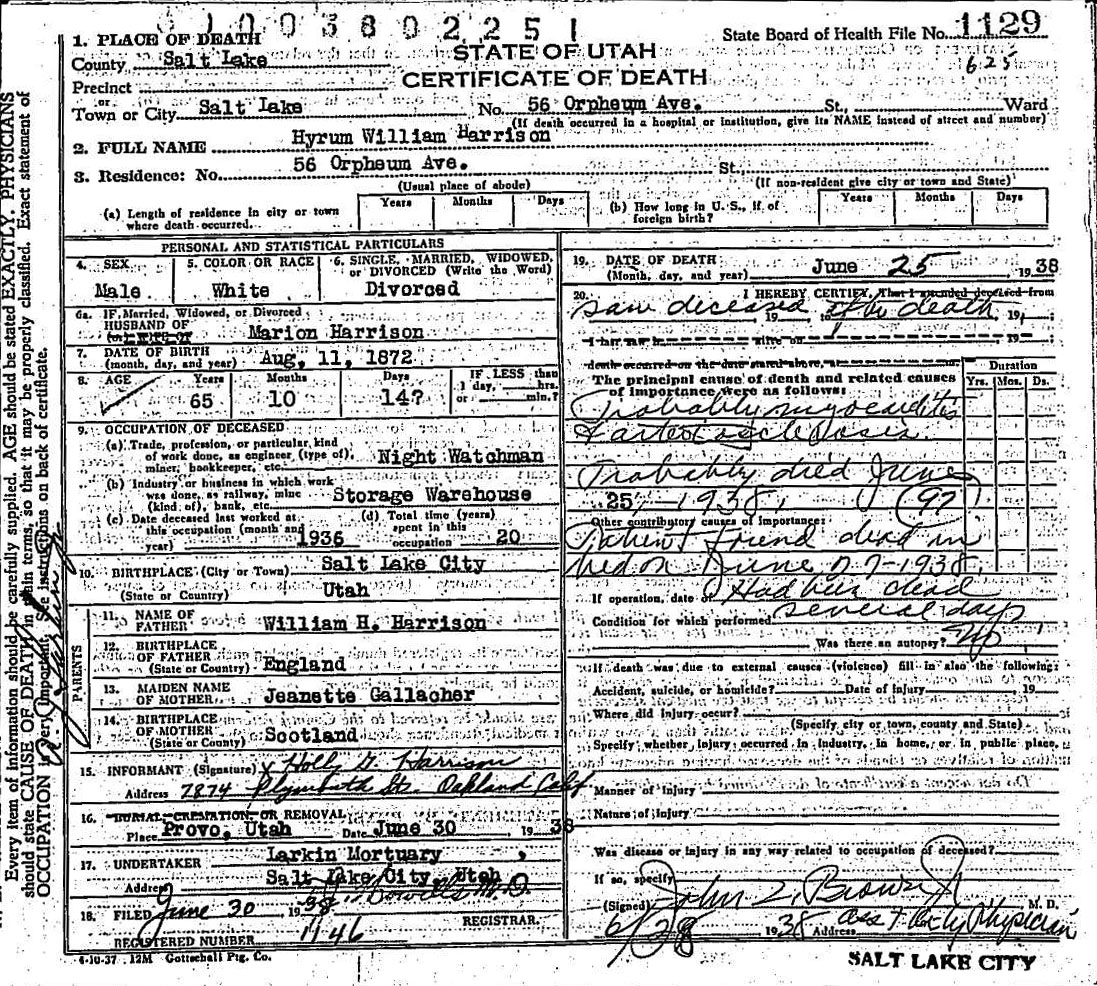 1 0 0 3 8 0 2 2 5 1
State Board of Health File No. 1129
625
STATE OF UTAH
CERTIFICATE OF DEATH
1. PLACE OF DEATH
County Salt Lake
Precinct
or
Town or City Salt Lake No. 56 Orpheum Ave. St., Ward
(If death occurred in a hospital or institution, give its NAME instead of street and number)
2. FULL NAME Hyrum William Harrison
3. Residence: No. 56 Orpheum Ave. St.,
(Usual place of abode) (If non-resident give city or town and State)
(a) Length of residence in city or town where death occurred. Years Months Days
(b) How long in U. S., if of foreign birth? Years Months Days
PERSONAL AND STATISTICAL PARTICULARS
4. SEX
Male
5. COLOR OR RACE
White
6. SINGLE, MARRIED, WIDOWED,
or DIVORCED (Write the Word)
Divorced
6a. IF Married, Widowed, or Divorced
HUSBAND OF
(or) WIFE OF Marion Harrison
7. DATE OF BIRTH
(month, day, and year) Aug. 11, 1872
8. AGE Years Months Days IF LESS than
1 day, hrs.
or min.?
65 10 14?
9. OCCUPATION OF DECEASED
(a) Trade, profession, or particular kind
of work done, as engineer (type of),
miner, bookkeeper, etc. Night Watchman
(b) Industry or business in which work
was done, as railway, mine
(kind of), bank, etc. Storage Warehouse
(c) Date deceased last worked at
this occupation (month and
year) 1936
(d) Total time (years)
spent in this
occupation 20
10. BIRTHPLACE (City or Town) Salt Lake City
(State or Country) Utah
PARENTS
11. NAME OF
FATHER William H. Harrison
12. BIRTHPLACE
OF FATHER
(State or Country) England
13. MAIDEN NAME
OF MOTHER Jeanette Gallacher
14. BIRTHPLACE
OF MOTHER
(State or Country) Scotland
15. INFORMANT (Signature) x Holly G. Harrison
Address 7874 Plymouth St. Oakland Calif
16. BURIAL, CREMATION, OR REMOVAL
Place Provo, Utah Date June 30 1938
17. UNDERTAKER Larkin Mortuary
Address Salt Lake City, Utah
18. FILED June 30 1938 M. D.
REGISTRAR.
REGISTERED NUMBER 1146
4-10-37 12M Gottschall Ptg. Co.
19. DATE OF DEATH
(Month, day, and year) June 25 1938
20. I HEREBY CERTIFY, That I attended deceased from
saw deceased after death 19
I last saw h alive on 19
death occurred on the date stated above, at m.
The principal cause of death and related causes
of importance were as follows:
Duration
Yrs. Mos. Ds.
Probably myocarditis
& arteriosclerosis.
Probably died June
25 - 1938.
Other contributory causes of importance:
Patient found dead in
bed on June 27-1938.
If operation, date of Had been dead
Condition for which performed several days
Was there an autopsy? No
If death was due to external causes (violence) fill in also the following:
Accident, suicide, or homicide? Date of injury 19
Where did injury occur?
(Specify city or town, county and State)
Specify whether injury occurred in industry, in home, or in public place.
Manner of Injury
Nature of Injury
Was disease or injury in any way related to occupation of deceased?
If so, specify
(Signed) John Z. Brown Jr M. D.
1938 Address Ass't City Physician
SALT LAKE CITY
Every item of information should be carefully supplied. AGE should be stated EXACTLY. PHYSICIANS
should state CAUSE OF DEATH in plain terms, so that it may be properly classified. Exact statement of
OCCUPATION is very important. See instructions on back of certificate.